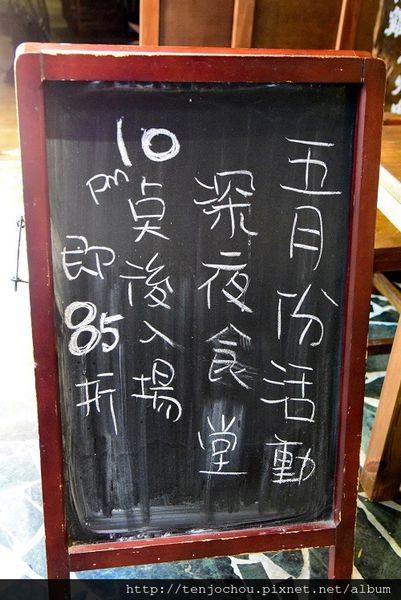 五月份活動
深夜食堂
10點後入場
pm
即85折
http://tenjochou.pixnet.net/album